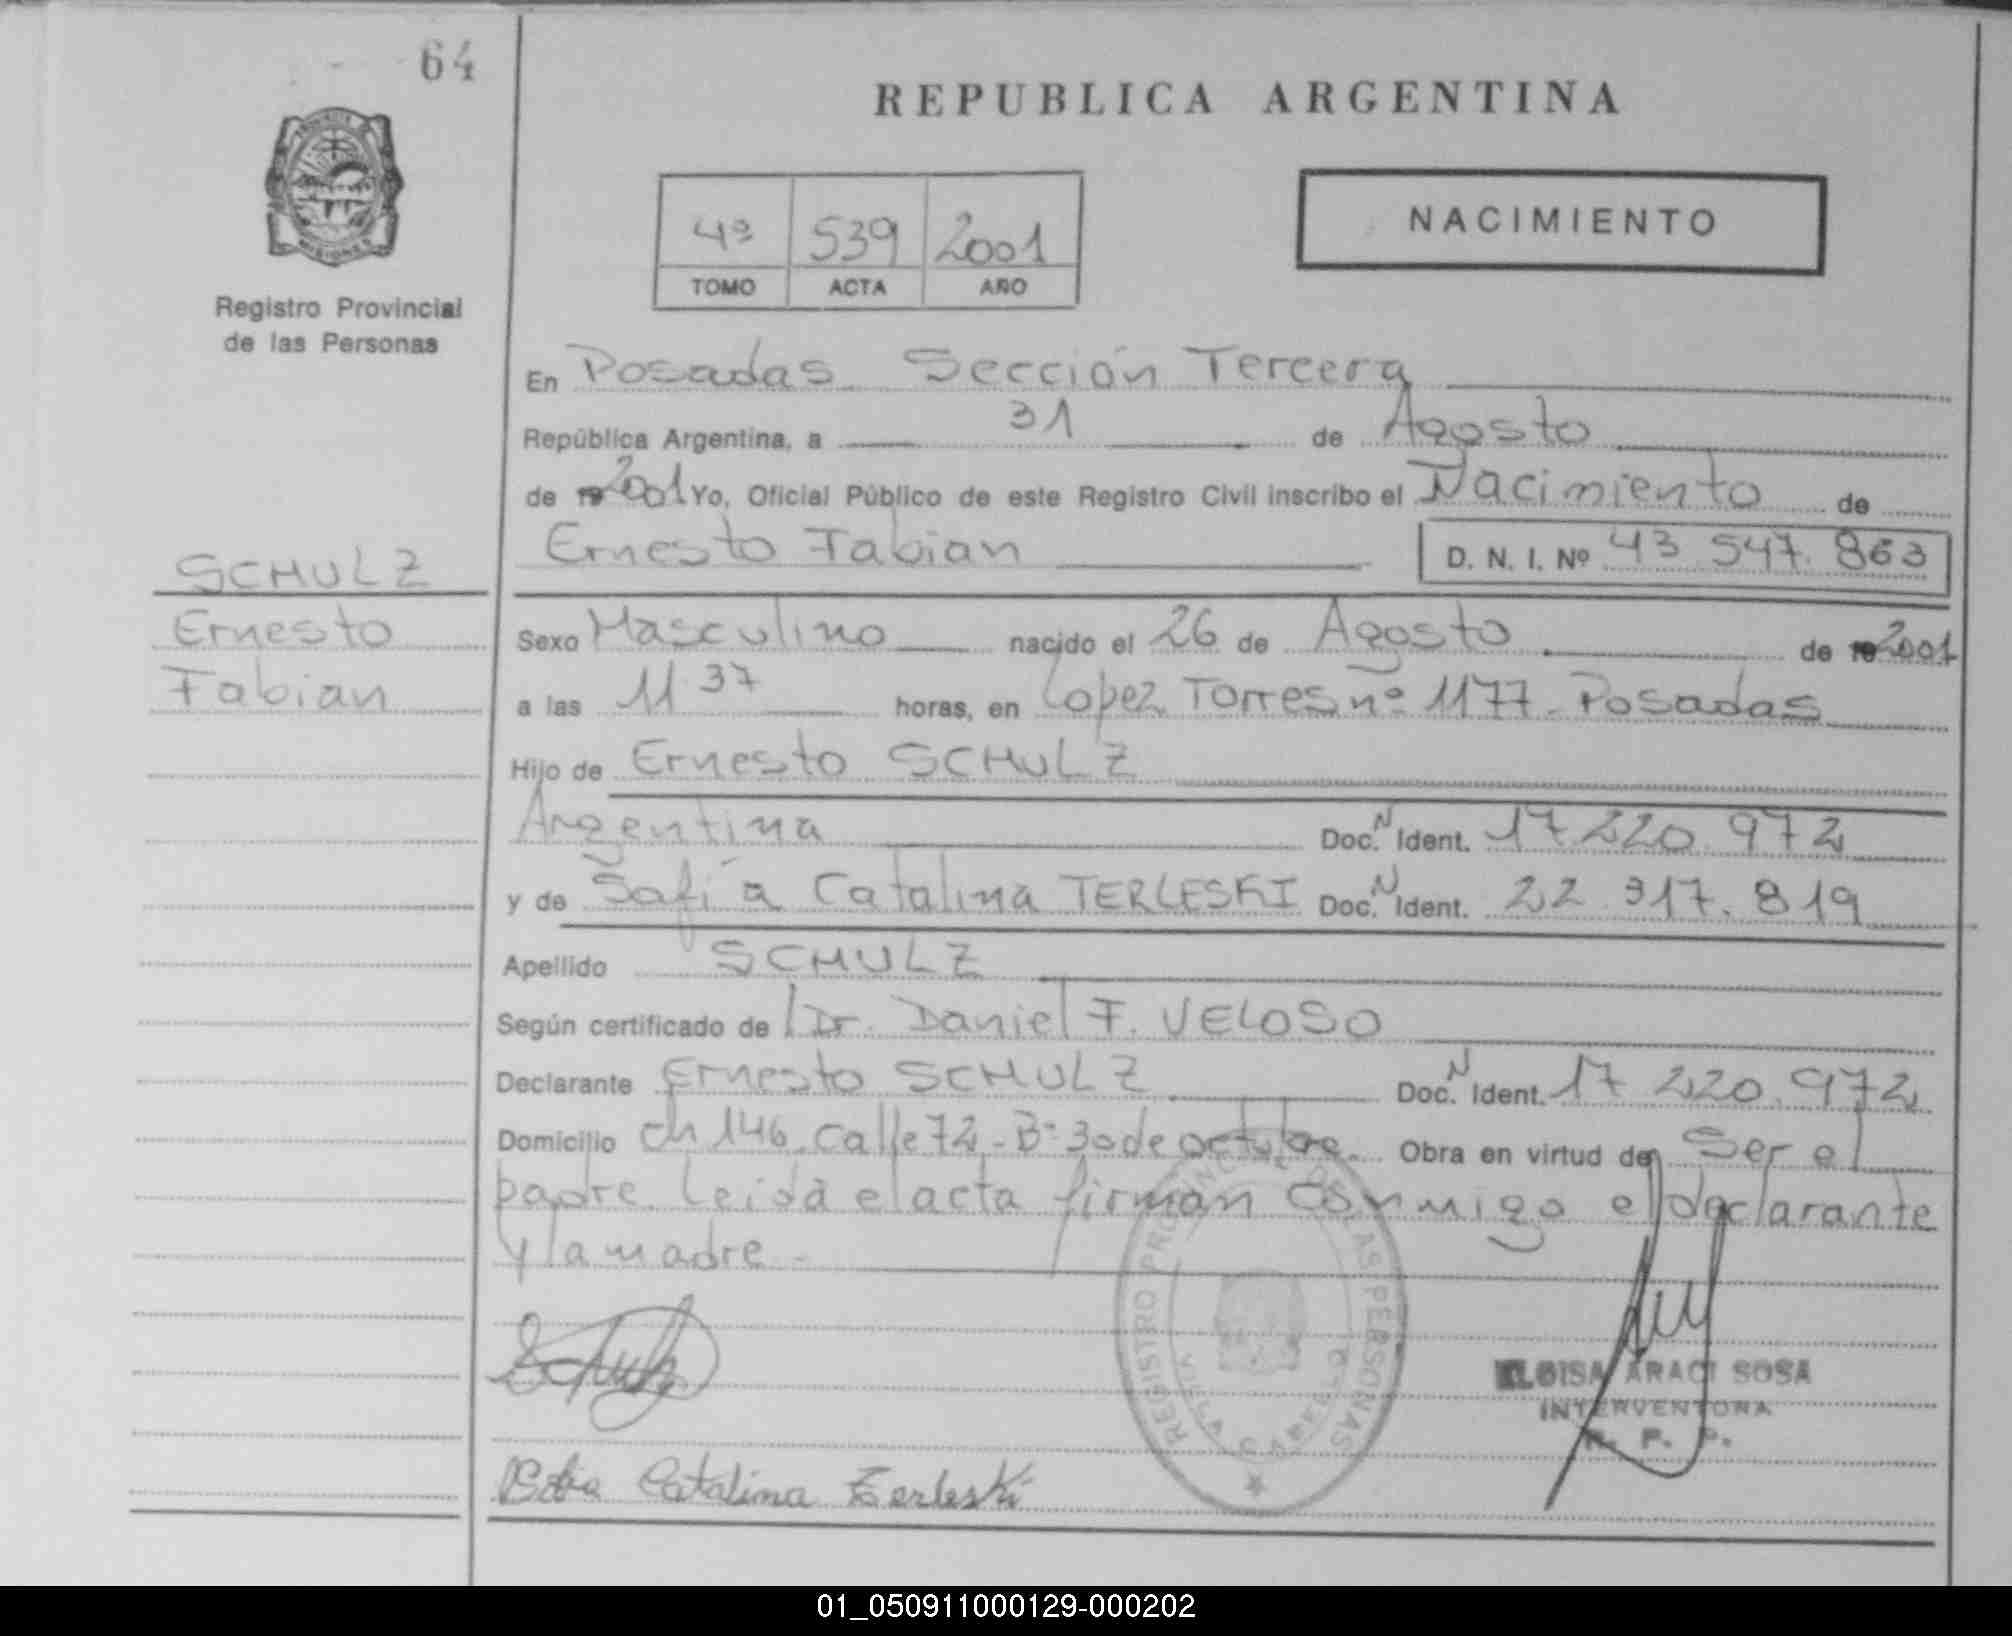 64
REPUBLICA ARGENTINA
4º 539 2001
TOMO ACTA AÑO
NACIMIENTO
Registro Provincial
de las Personas
En Posadas Sección Tercera
República Argentina, a 31 de Agosto
de 19 2001 Yo, Oficial Público de este Registro Civil inscribo el Nacimiento de
Ernesto Fabian D. N. I. Nº 43 547. 863
SCHULZ
Ernesto
Fabian
Sexo Masculino nacido el 26 de Agosto de 19 2001
a las 11 37 horas, en Lopez Torres nº 1177 - Posadas
Hijo de Ernesto SCHULZ
Argentina Doc. N Ident. 17 220. 972
y de Sofía Catalina TERLESKI Doc. N Ident. 22 317. 819
Apellido SCHULZ
Según certificado de Dr. Daniel F. VELOSO
Declarante Ernesto SCHULZ Doc. N Ident. 17 220. 972
Domicilio Ch 146. Calle 72 - Bº 30 de octubre. Obra en virtud de Ser el
padre. Leida el acta firman conmigo el declarante
y la madre -
REGISTRO PROVINCIAL DE LAS PERSONAS
Schulz
ELOISA ARACI SOSA
INTERVENTORA
R. P. P.
Catalina Terleski
01_050911000129-000202